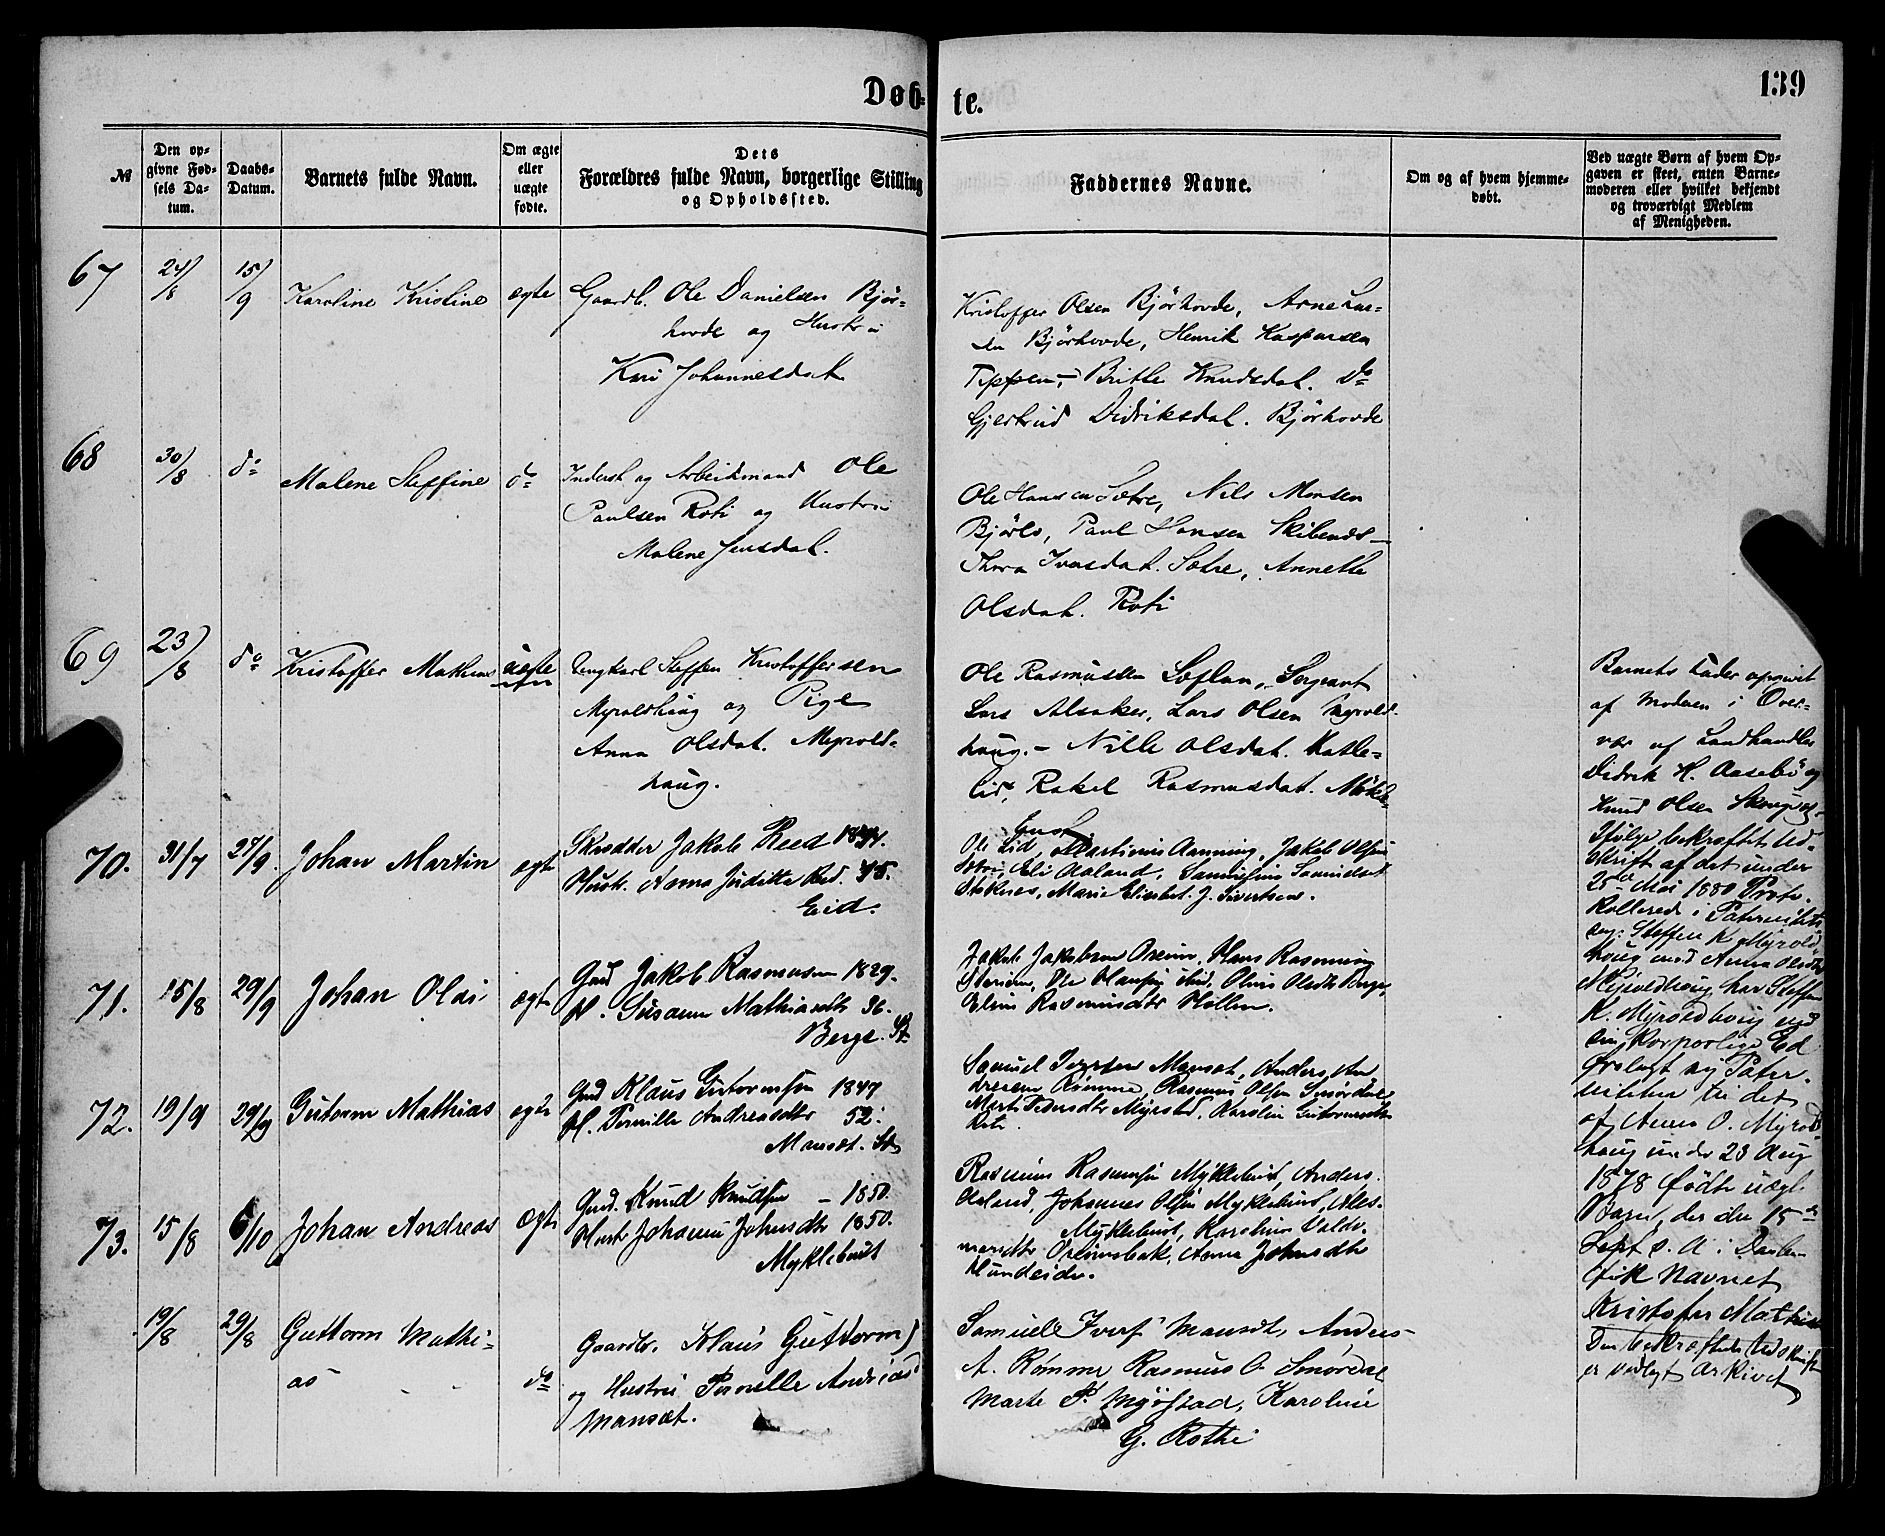 Døb-
te.
139
№
Den op-
givne Fød-
sels Da-
tum.
Daabs-
Datum.
Barnets fulde Navn.
Om ægte
eller
uægte
fødte.
Dets
Forældres fulde Navn, borgerlige Stilling
og Opholdssted.
Faddernes Navne.
Om og af hvem hjemme-
døbt.
Ved uægte Børn af hvem Op-
gaven er skeet, enten Barne-
moderen eller hvilket bekjendt
og troværdigt Medlem
af Menigheden.
67
24/8
15/9
Karoline Kristine
ægte
Gaardb. Ole Danielsen Bjør-
hovde og Hustru
Kari Johannesdat.
Kristoffer Olsen Bjørhovde, Arne Lar-
sen Bjørhovde, Henrik Kaspersen
Brithe Knudsdat. do
Gjertrud Didriksdat. Bjørhovde
68
30/8
do
Malene Steffine
do
Inderst og Arbeidsmand Ole
Paulsen Roti og Hustru
Malene Jensdat.
Ole Hansen Sætre, Nils Monsen
Bjørlo, Paul Hansen
Thora Iversdat. Sætre, Annethe
Olsdat. Roti
69
23/8
do
Kristoffer Mathias
uægte
Ungkarl Steffen Kristoffersen
Myroldhaug og Pige
Anna Olsdat. Myrold-
haug.
Ole Rasmussen Løflan, Sergeant
Lars Alsaker, Lars Olsen Myrold-
haug. - Nille Olsdat. Hatle-
lid, Rakel Rasmusdat. Mykle-
bust
Barnets Fader opgivet
af Moderen i Over-
vær af Landhandler
Didrik H. Aasebø og
Knud Olsen
Ifølge bekræftet Ud-
skrift af det under
28de Mai 1880 Proto-
kollerede i Paternitets
sag: Steffen K Myrold
houg mod Anna Olsdtr
Myroldhoug har Steffen
K. Myroldhoug ved
sin korporlige Ed
fralagt sig Pater-
niteten til det
af Anna O. Myrold
houg under 23 Aug
1878 fødte uægte
Barn, der den 15de
Sept s. A i Daaben
fik Navnet
Kristofer Mathias
Den bekræftede Udskrift
er vedlagt Arkivet
70.
31/7
27/9.
Johan Martin
egte
Skrædder Jakob Reed 1844.
Hustr. Anna Juditta Rd. 45.
Eid.
Ole Eid, Martinus Aanning, Jakob Olsen
Eli Aaland,
Stoknes, Marie Elisebet J. Sivertsen.
71.
15/8
29/9
Johan Olai
egte
Gmd Jakob Rasmusen 1829.
H. Susanne Mathiasdtr 36.
Berge. St.
Jakob Jakobsen Oreim, Hans Rasmusen
Eid, Oline Olsdtr Berge,
Eline Rasmusdtr Hollen.
72.
19/9
29/9
Gutorm Mathias
egte
Gmd Klaus Gutormsen 1847
H. Pernille Andreasdtr 52.
Mansæt. St
Samuel Iversen Mansæt, Anders An
dresen Rømme, Rasmus Olsen Smørdal,
Marte Pedersdtr Myrstad, Karoline Gutormsdtr
Roti.
73.
15/8
6/10
Johan Andreas
egte
Gmd. Knud Knudsen - 1850.
Hustr Johanne Johnsdtr 1850.
Myklebust
Rasmus Rasmusen Myklebust, Anders
Aaland, Johannes Olsen Myklebust,
Myklebust, Karoline Valde-
marsdtr Oreimsbak, Anna Johnsdtr
Hundeide.
19/8
29/8
Guttorm Mathi-
as
do
Gaardbr. Klaus Guttorms
og Hustru Pernelle Andreasd
Mansæt.
Samuell Ivers Mansæt, Anders
A. Rømme Rasmus O Smørdal
Marte P. Myrstad, Karoline
G. Rothi